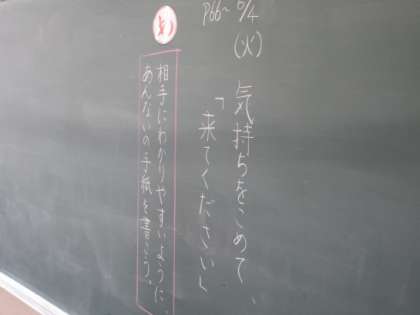 6/4
(火)
P66~
気持ちをこめて、
「来てください」
相手にわかりやすいように、
あんないの手紙を書こう。